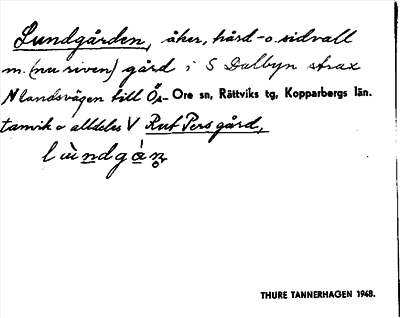 Lundgården, åker, hård- o. sidvall
m. (nu riven) gård i S Dalbyn strax
N landsvägen till Ös- Ore sn, Rättviks tg, Kopparbergs län.
tanvik o alldeles V Rut Pers gård,
lùndgá̀n̥
THURE TANNERHAGEN 1948.